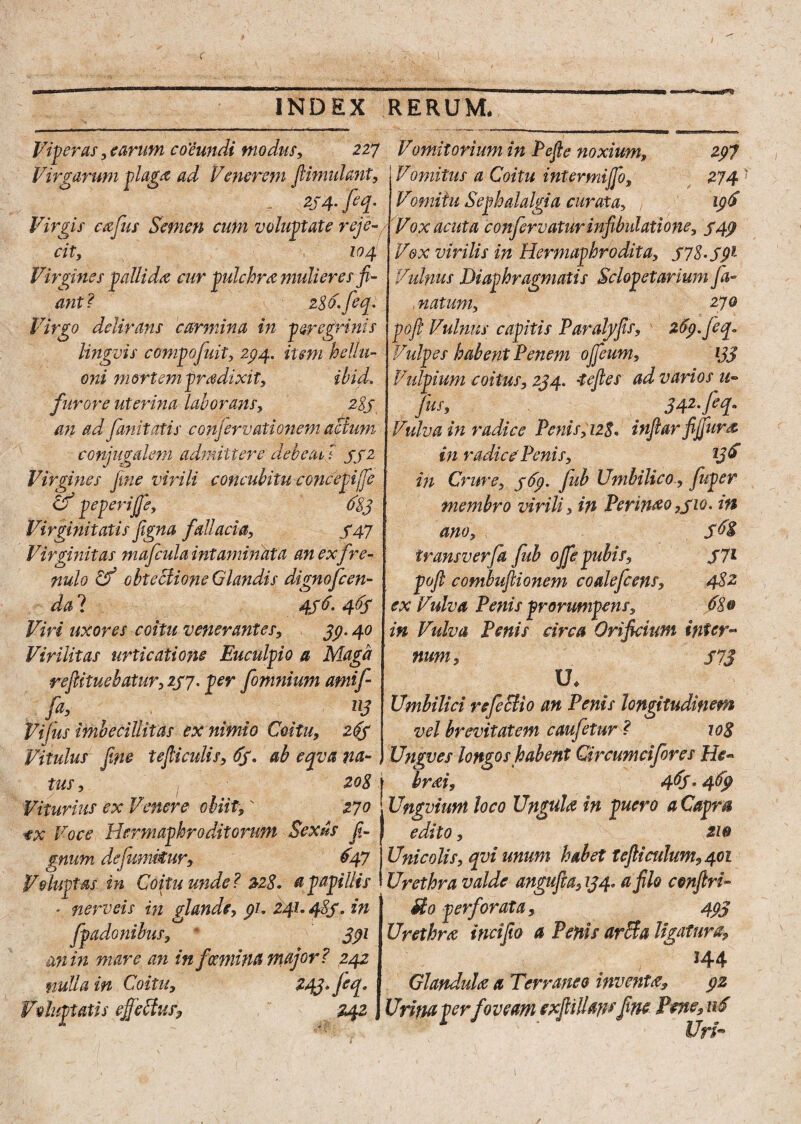 INDEX RERUM.
Viperas, earum coëundi modus, 227
Virgarum plagæ ad Venerem ſtimulant,
254. ſeq.
Virgis cæſus Semen cum voluptate reje-
cit, 104
Virgines pallidæ cur pulchræ mulieres fi-
ant? 286. ſeq.
Virgo delirans carmina in peregrinis
lingvis compoſuit, 294. item hellu-
oni mortem prædixit, ibid.
furore uterina laborans, 285
an ad ſanitatis conſervationem actum
conjugalem admittere debeat? 552
Virgines ſine virili concubitu concepiſſe
& peperiſſe, 683
Virginitatis ſigna fallacia, 547
Virginitas maſcula intaminata an ex fre-
nulo & obtectione Glandis dignoſcen-
da? 456. 465
Viri uxores coitu venerantes, 39. 40
Virilitas urticatione Euculpio a Magâ
reſtituebatur, 257. per ſomnium amiſ-
ſa, 113
Viſus imbecillitas ex nimio Coitu, 265
Vitulus ſine teſticulis, 65. ab eqva na-
tus, 208
Viturius ex Venere obiit, 270
ex Voce Hermaphroditorum Sexûs ſi-
gnum deſumitur, 647
Voluptas in Coitu unde? 228. a papillis
nerveis in glande, 91. 241. 485. in
ſpadonibus, 391
an in mare an in fœmina major? 242
nulla in Coitu, 243. ſeq.
Voluptatis effectus, 242
Vomitorium in Peſte noxium, 297
Vomitus a Coitu intermiſſo, 274
Vomitu Sephalalgia curata, 196
Vox acuta conſervatur infibulatione, 549
Vox virilis in Hermaphrodita, 578. 591
Vulnus Diaphragmatis Sclopetarium ſa-
natum, 270
poſt Vulnus capitis Paralyſis, 269. ſeq.
Vulpes habent Penem oſſeum, 133
Vulpium coitus, 234. teſtes ad varios u-
ſus, 342. ſeq.
Vulva in radice Penis, 128. inſtar fiſſuræ
in radice Penis, 136
in Crure, 569. ſub Umbilico, ſuper
membro virili, in Perinæo, 510. in
ano, 568
transverſa ſub oſſe pubis, 571
poſt combuſtionem coaleſcens, 482
ex Vulva Penis prorumpens, 680
in Vulva Penis circa Orificium inter-
num, 573
U.
Umbilici reſectio an Penis longitudinem
vel brevitatem cauſetur? 108
Ungves longos habent Circumciſores He-
bræi, 465. 469
Ungvium loco Ungulæ in puero a Capra
edito, 210
Unicolis, qvi unum habet teſticulum, 401
Urethra valde anguſta, 134. a filo conſtri-
cto perforata, 493
Urethræ inciſio a Penis arcta ligatura,
144
Glandulæ a Terraneo inventæ, 92
Urina per foveam exſtillans ſine Pene, 116
Uri-